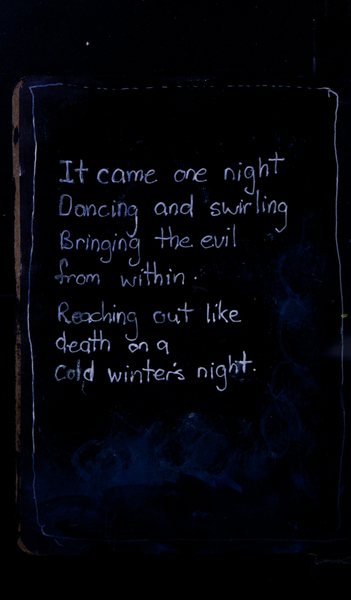 It came one night
Dancing and swirling
Bringing the evil
from within.
Reaching out like
death on a
cold winter's night.